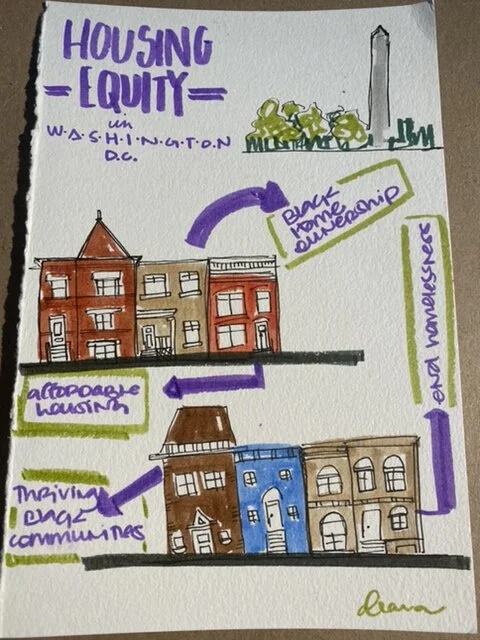 HOUSING
= EQUITY =
in
W.A.S.H.I.N.G.T.O.N
D.C.
BLACK
HOME
OWNERSHIP
end homelessness
affordable
housing
Thriving
Black
communities